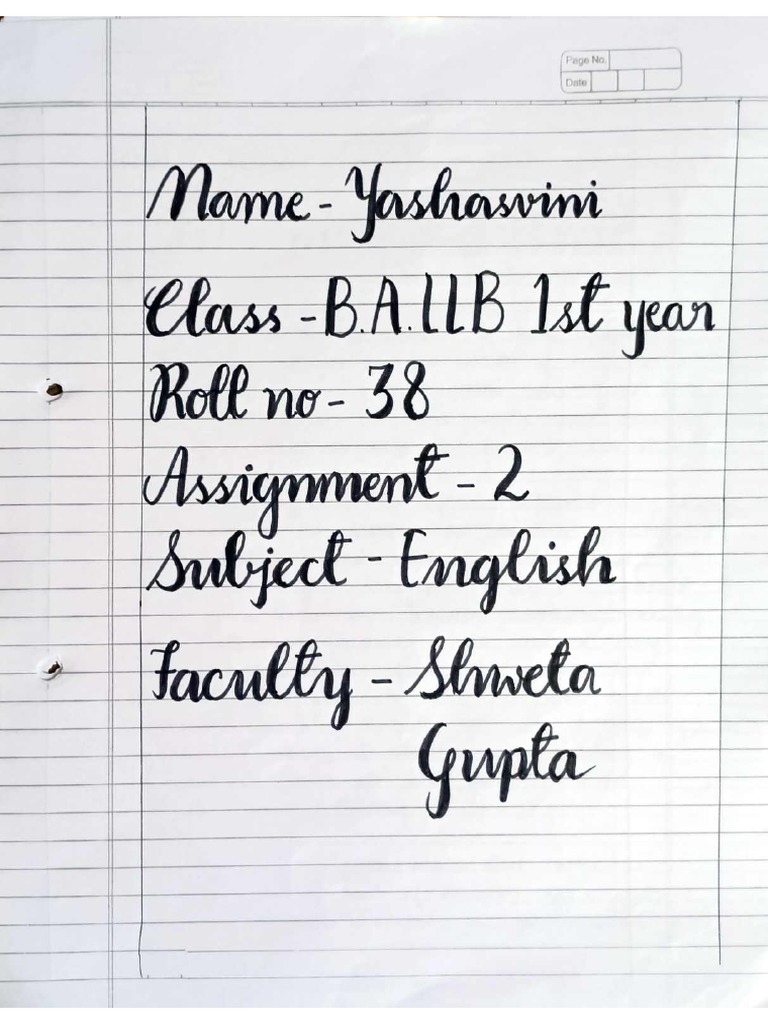 Page No.
Date
Name - Yashasvini
Class - B.A.LLB 1st year
Roll no - 38
Assignment - 2
Subject - English
Faculty - Shweta
Gupta